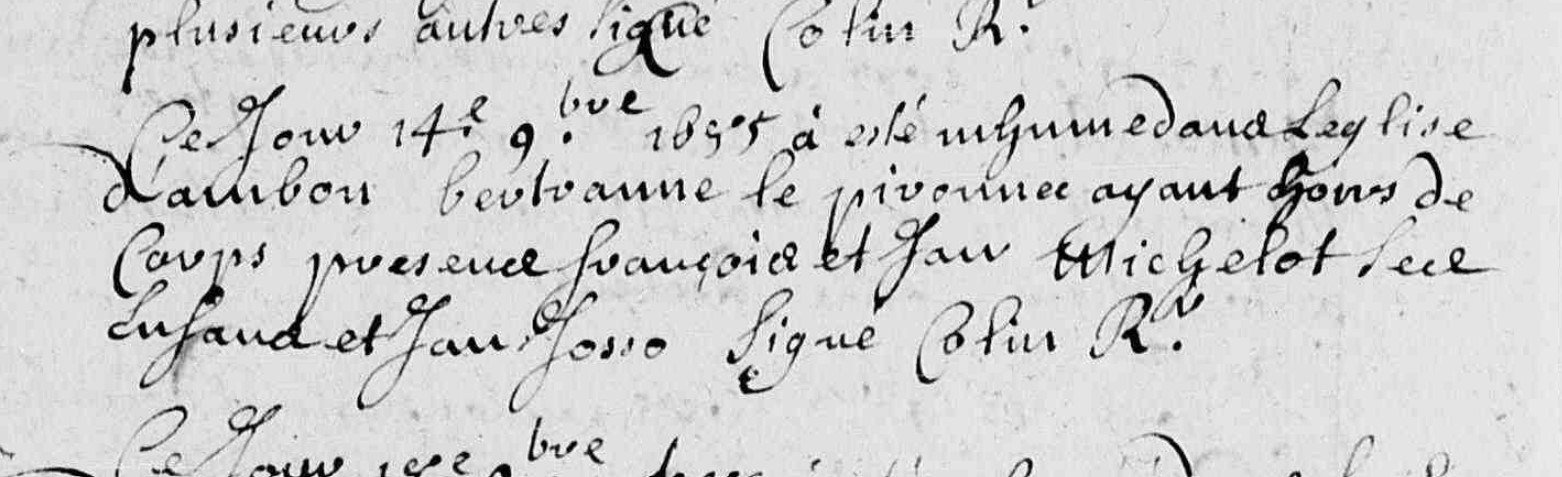 plusieurs autres signé Colin R.r
Ce Jour 14.e 9.bre 1695 à esté inhumé dans Leglise
d'ambon bertranne le pironnec ayant hons de
Corps presence françois et Jan Michelot sees
Enfans et Jan Josso signé Colin R.r
Ce Jour 9bre